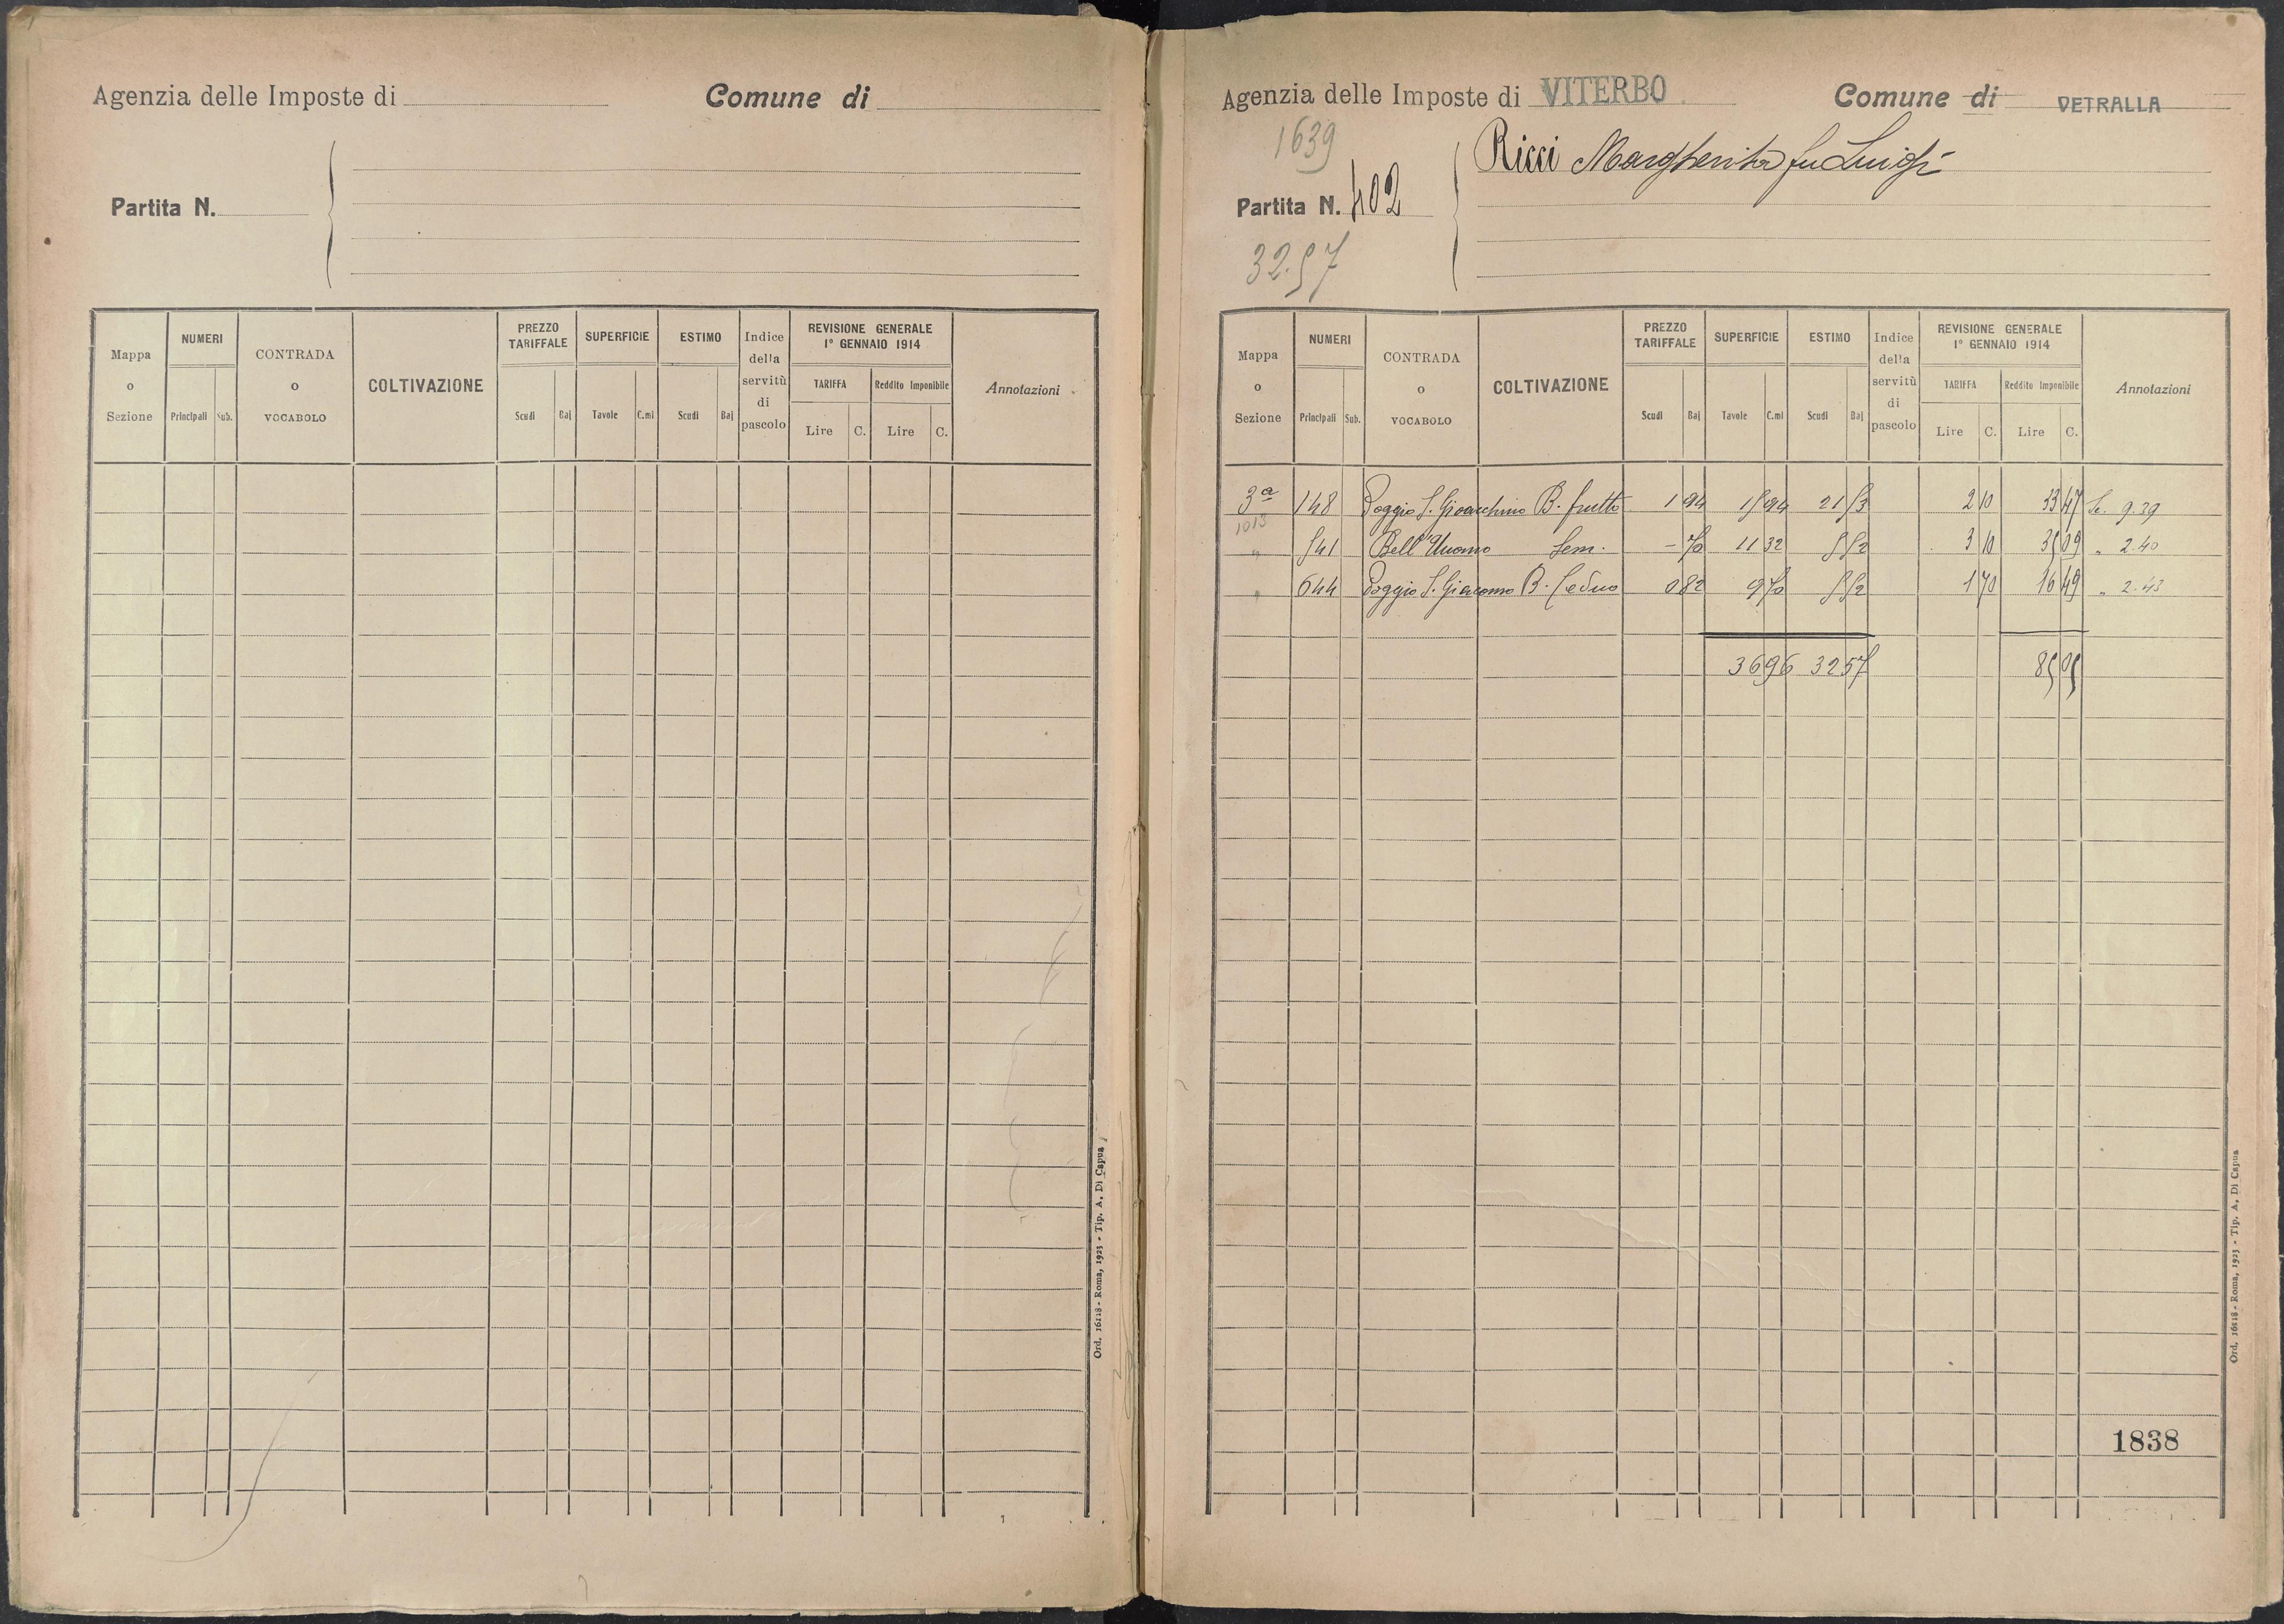 Agenzia delle Imposte di Comune di
Partita N.
Mappa o Sezione NUMERI Principali Sub. CONTRADA o VOCABOLO COLTIVAZIONE PREZZO TARIFFALE Scudi Baj SUPERFICIE Tavole C.mi ESTIMO Scudi Baj Indice della servitù di pascolo REVISIONE GENERALE 1° GENNAIO 1914 TARIFFA Lire C. Reddito Imponibile Lire C. Annotazioni
Ord. 16118 - Roma, 1923 - Tip. A. Di Capua
Agenzia delle Imposte di VITERBO Comune di VETRALLA
1639
Ricci Margherita fu Luigi
Partita N. 402
32.57
Mappa o Sezione NUMERI Principali Sub. CONTRADA o VOCABOLO COLTIVAZIONE PREZZO TARIFFALE Scudi Baj SUPERFICIE Tavole C.mi ESTIMO Scudi Baj Indice della servitù di pascolo REVISIONE GENERALE 1° GENNAIO 1914 TARIFFA Lire C. Reddito Imponibile Lire C. Annotazioni
3ª 148 Poggio S. Gioacchino B. frutto 1 94 15 94 21 53 2 10 33 47 Sc. 9.39
1013
" 541 Bell'Uomo Sem. - 11 32 5 52 3 10 35 09 " 2.40
" 644 Poggio S. Giacomo B. Ceduo 0 82 9 70 5 52 1 70 16 49 " 2.43
36 96 32 57 85 05
1838
Ord. 16118 - Roma, 1923 - Tip. A. Di Capua